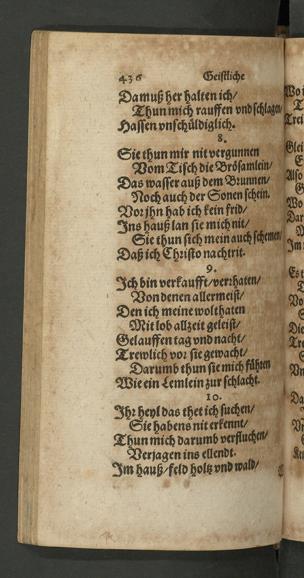 436 Geistliche
Da muß her halten ich/
Thun mich rauffen vnd schlagen/
Hassen vnschüldiglich.
8.
Sie thun mir nit vergunnen
Vom Tisch die Brösamlein/
Das wasser auß dem Brunnen/
Noch auch der Sonen schein.
Vor jhn hab ich kein frid/
Ins hauß lan sie mich nit/
Sie thun sich mein auch schemen/
Daß ich Christo nachtrit.
9.
Ich bin verkaufft/verrhaten/
Von denen allermeist/
Den ich meine wolthaten
Mit lob allzeit geleist/
Gelauffen tag vnd nacht/
Trewlich vor sie gewacht/
Darumb thun sie mich führen
Wie ein Lemlein zur schlacht.
10.
Ihr heyl das thet ich suchen/
Sie habens nit erkennt/
Thun mich darumb verfluchen/
Verjagen ins ellendt.
Im hauß/feld holtz vnd wald/